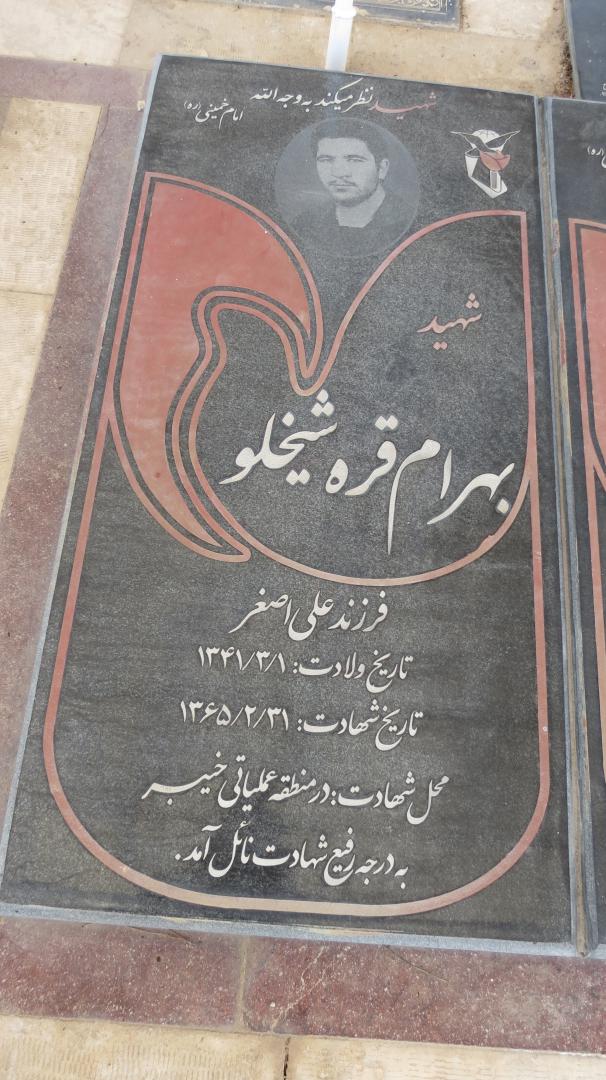 شهید نظر میکند به وجه الله
امام خمینی (ره)
شهید
بهرام قره شیخلو
فرزند علی اصغر
تاریخ ولادت: ۱۳۴۱/۳/۱
تاریخ شهادت: ۱۳۶۵/۲/۳۱
محل شهادت: در منطقه عملیاتی خیبر
به درجه رفیع شهادت نائل آمد.
(ره)